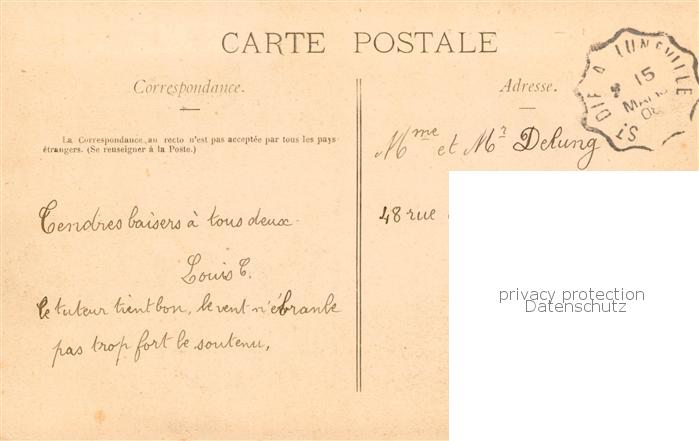 CARTE POSTALE
Correspondance.
Adresse.
La Correspondance au recto n'est pas acceptée par tous les pays
étrangers. (Se renseigner à la Poste.)
ST DIE A LUNEVILLE
15
MARS
08
Mme et Mr Delung
48 rue
Tendres baisers à tous deux.
Louis T.
le tuteur tient bon, le vent n'ébranle
pas trop fort le soutenu.
privacy protection
Datenschutz